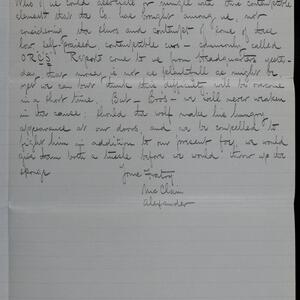 Who if we could associate or mingle with this contemptible
element that the Co. has brought among us, not
considering the slurs and contempt of some of these
low, self-praised, contemptible curs - commonly called
"ORCS" Report come to us from Headquarters yester-
day that money is not as plentiful as might be
yet we can but think this difficulty will be overcome
in a short time. But - Boos - we will never weaken
in the cause; should the wolf make his hungry
appearance at our doors, and we be compelled to
fight him in addition to our present foe, we would
give them both a tussle before we would throw up the
sponge
Yours Fratly
McClain
Alexander